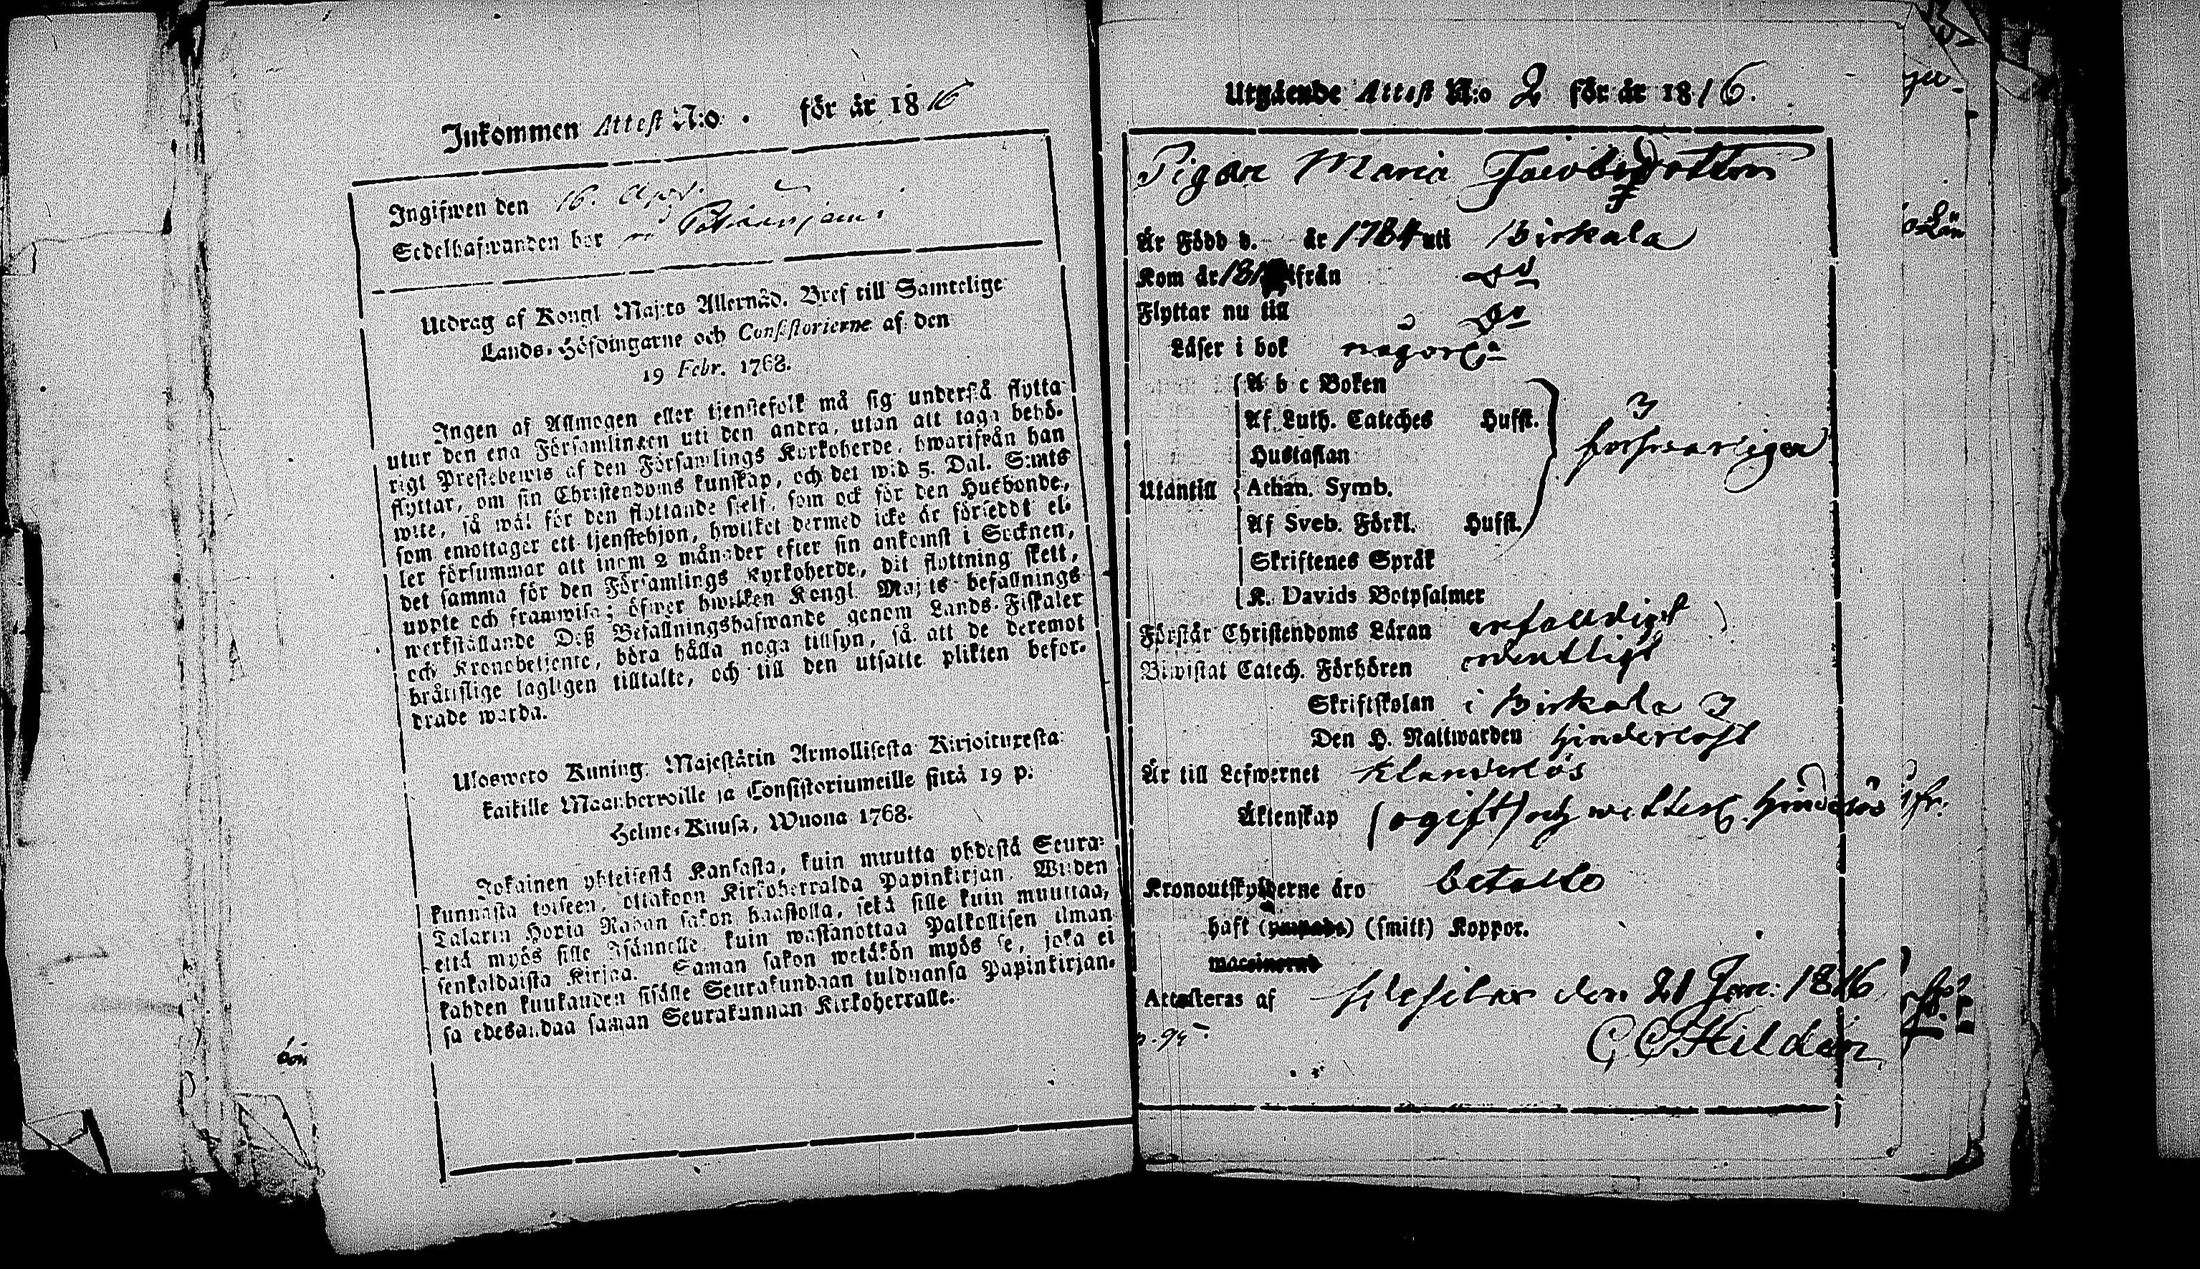 Inkommen Attest N:o . för år 1816
Ingifwen den 16. Apr.
Sedelhafwanden bor
Utdrag af Kongl. Maj:ts Allernåd. Bref till Samtelige
Lands-Höfdingarne och Consistorierne af den
19 Febr. 1768.
Ingen af Allmogen eller tjenstefolk må sig understå flytta
utur den ena Församlingen uti den andra, utan att taga behö-
rigt Prestebewis af den Församlings Kyrkoherde, hwarifrån han
flyttar, om sin Christendoms kunskap, och det wid 5. Dal. S:mts
wite, så wäl för den flyttande sjelf, som ock för den Husbonde,
som emottager ett tjenstehjon, hwilket dermed icke är försedt el-
ler försummar att inom 2 månader efter sin ankomst i Socknen,
det samma för den Församlings Kyrkoherde, dit flyttning skett,
uppte och framwisa; öfwer hwilken Kongl. Maj:ts befallnings
werkställande Deß Befallningshafwande genom Lands-Fiskaler
och Kronobetjente, böra hålla noga tillsyn, så att de deremot
bråttslige lagligen tilltalte, och till den utsatte plikten befor-
drade warda.
Ulosweto Kuning. Majestätin Armollisesta Kirjoituxesta
kaikille Maanherroille ja Consistoriumeille siitä 19 p:
Helme-Kuusa, Wuona 1768.
Jokainen yhteisestä Kansasta, kuin muutta yhdestä Seura-
kunnasta toiseen, ottakoon Kirkoherralda Papinkirjan, Wiiden
Talarin Hopia Rahan sakon haastolla, sekä sille kuin muuttaa,
että myös sille Isännelle, kuin wastanottaa Palkollisen ilman
senkaldaista Kirjaa. Saman sakon wetäkön myös se, joka ei
kahden kuukauden sisälle Seurakundaan tulduansa Papinkirjan-
sa edesandaa saman Seurakunnan Kirkoherralle.
Utgående Attest N:o 2 för år 1816.
Pigan Maria Jacobsdotter
Är Född d. år 1784 uti Birkala
Kom år 181 ifrån do
Flyttar nu till do
Läser i bok någorl.
A b c Boken
Af Luth. Cateches Hufst.
Hustaflan
Utantill Athan. Symb.
Af Sveb. Förkl. Hufst.
Skriftenes Språk
K. Davids Botpsalmer
försvarligen
Förstår Christendoms Läran enfaldigt
Biwistat Catech. Förhören ordentligt
Skriftskolan i Birkala
Den H. Nattwarden hinderlöst
Är till Lefwernet klanderlös
Äktenskap (ogift) och wetterl. hinderlös
Kronoutskylderne äro betalte
haft (ympade) (smitt) Koppor.
vaccinerad
Attesteras af den 21 Jan: 1816
p. 95.
G Hildén